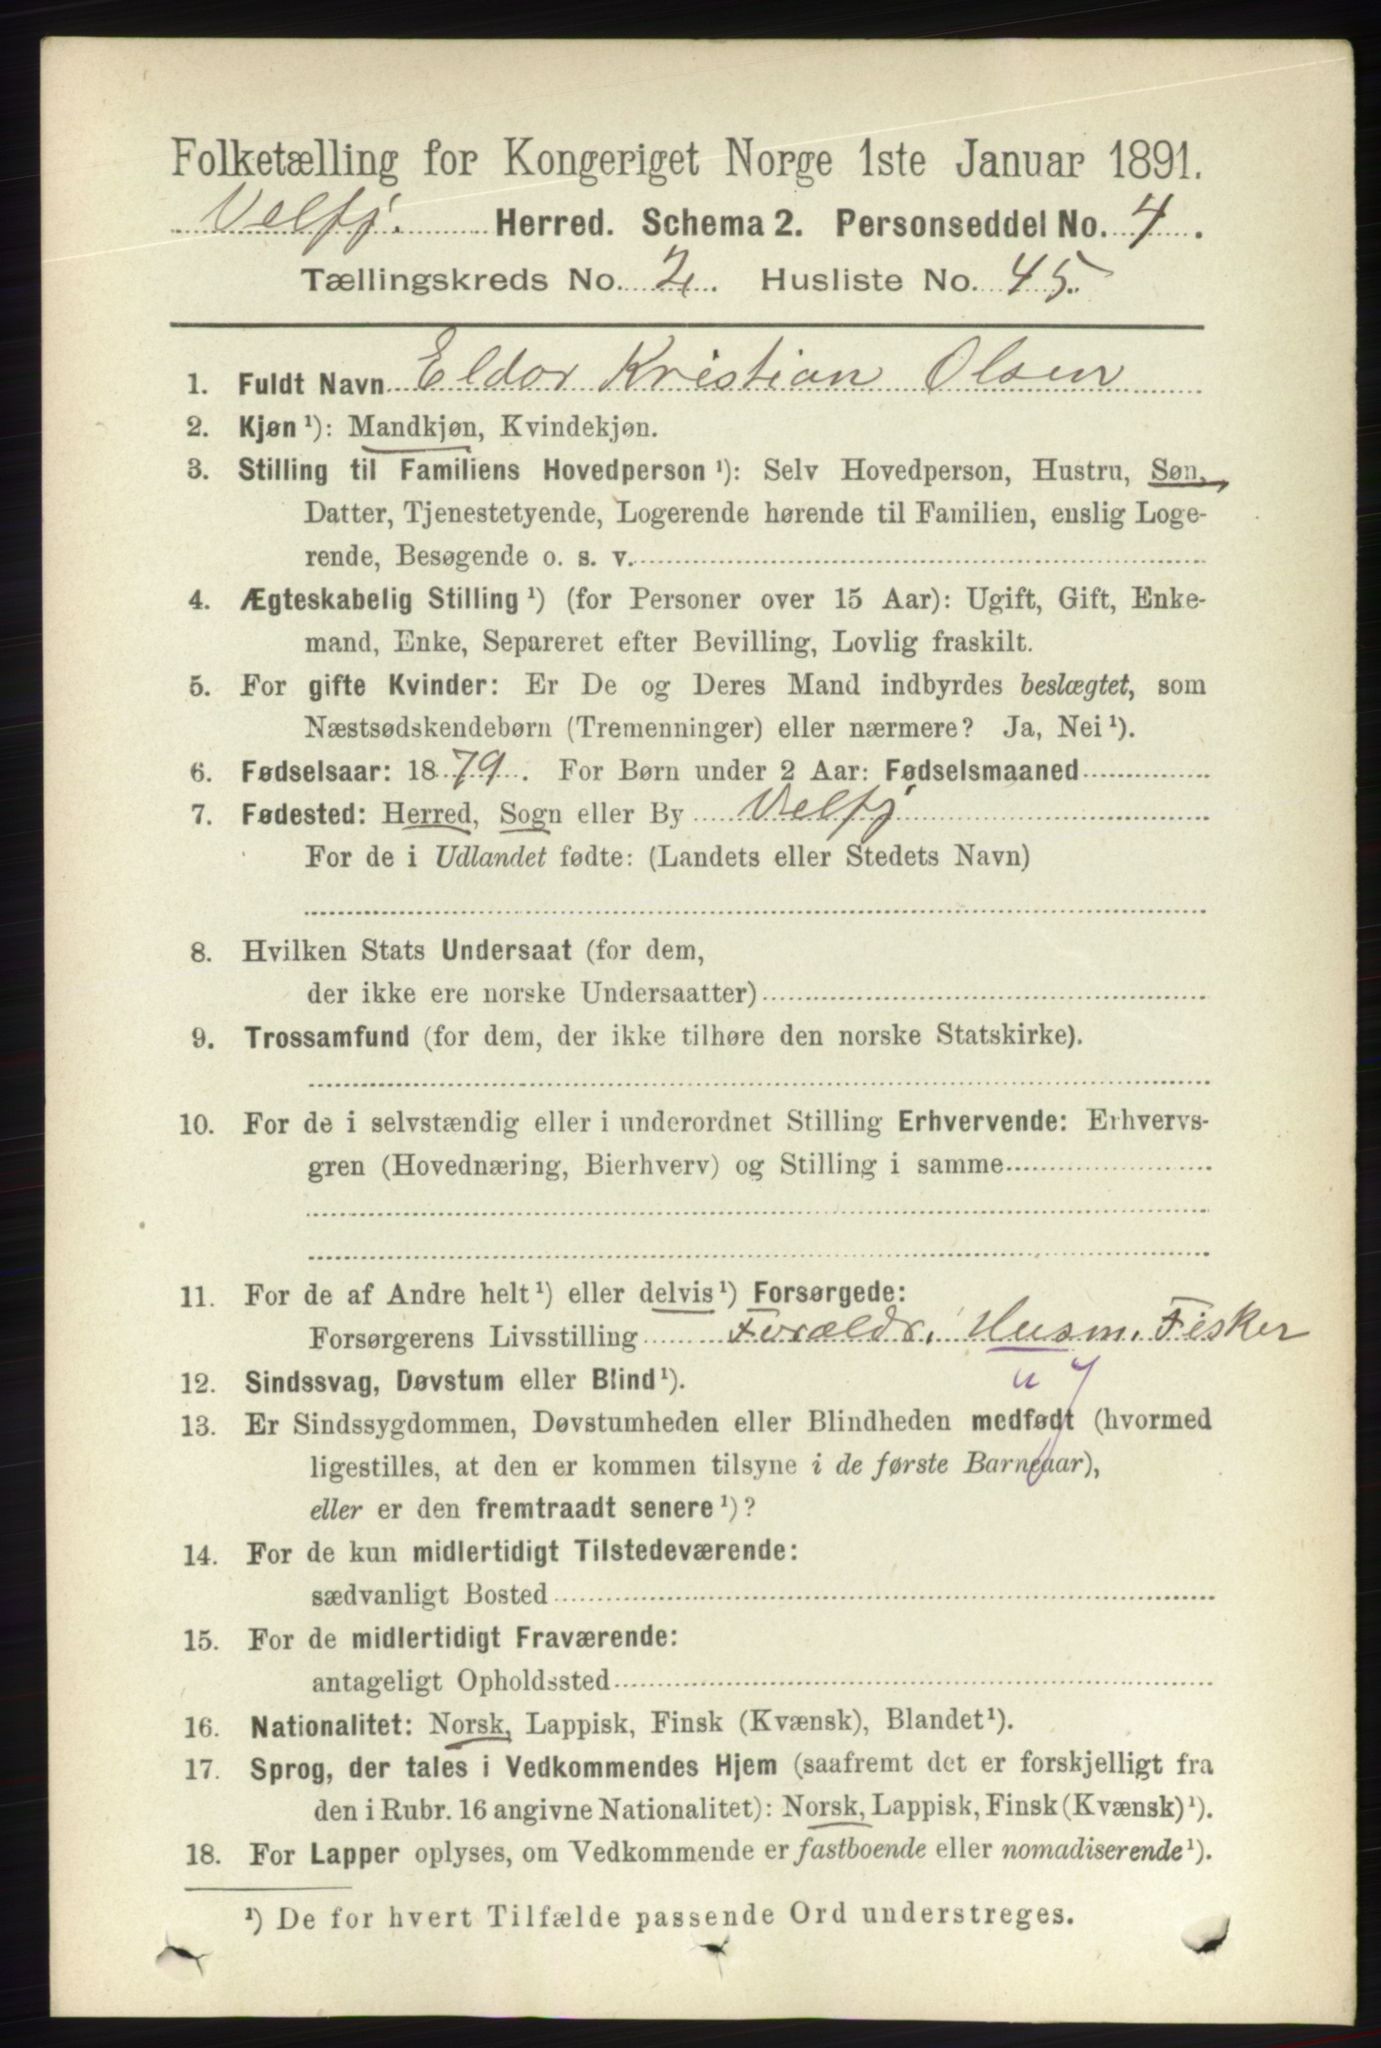 Folketælling for Kongeriget Norge 1ste Januar 1891.
Velfj. Herred. Schema 2. Personseddel No. 4.
Tællingskreds No. 2. Husliste No. 45.
1. Fuldt Navn Eldor Kristian Olsen
2. Kjøn¹): Mandkjøn, Kvindekjøn.
3. Stilling til Familiens Hovedperson¹): Selv Hovedperson, Hustru, Søn,
Datter, Tjenestetyende, Logerende hørende til Familien, enslig Loge-
rende, Besøgende o. s. v.
4. Ægteskabelig Stilling¹) (for Personer over 15 Aar): Ugift, Gift, Enke-
mand, Enke, Separeret efter Bevilling, Lovlig fraskilt.
5. For gifte Kvinder: Er De og Deres Mand indbyrdes beslægtet, som
Næstsødskendebørn (Tremenninger) eller nærmere? Ja, Nei¹).
6. Fødselsaar: 1879. For Børn under 2 Aar: Fødselsmaaned
7. Fødested: Herred, Sogn eller By Velfj
For de i Udlandet fødte: (Landets eller Stedets Navn)
8. Hvilken Stats Undersaat (for dem,
der ikke ere norske Undersaatter)
9. Trossamfund (for dem, der ikke tilhøre den norske Statskirke).
10. For de i selvstændig eller i underordnet Stilling Erhvervende: Erhvervs-
gren (Hovednæring, Bierhverv) og Stilling i samme
11. For de af Andre helt¹) eller delvis¹) Forsørgede:
Forsørgerens Livsstilling Forældr. Husm. Fisker
12. Sindssvag, Døvstum eller Blind¹).
13. Er Sindssygdommen, Døvstumheden eller Blindheden medfødt (hvormed
ligestilles, at den er kommen tilsyne i de første Barneaar),
eller er den fremtraadt senere¹)?
14. For de kun midlertidigt Tilstedeværende:
sædvanligt Bosted
15. For de midlertidigt Fraværende:
antageligt Opholdssted
16. Nationalitet: Norsk, Lappisk, Finsk (Kvænsk), Blandet¹).
17. Sprog, der tales i Vedkommendes Hjem (saafremt det er forskjelligt fra
den i Rubr. 16 angivne Nationalitet): Norsk, Lappisk, Finsk (Kvænsk)¹).
18. For Lapper oplyses, om Vedkommende er fastboende eller nomadiserende¹).
¹) De for hvert Tilfælde passende Ord understreges.